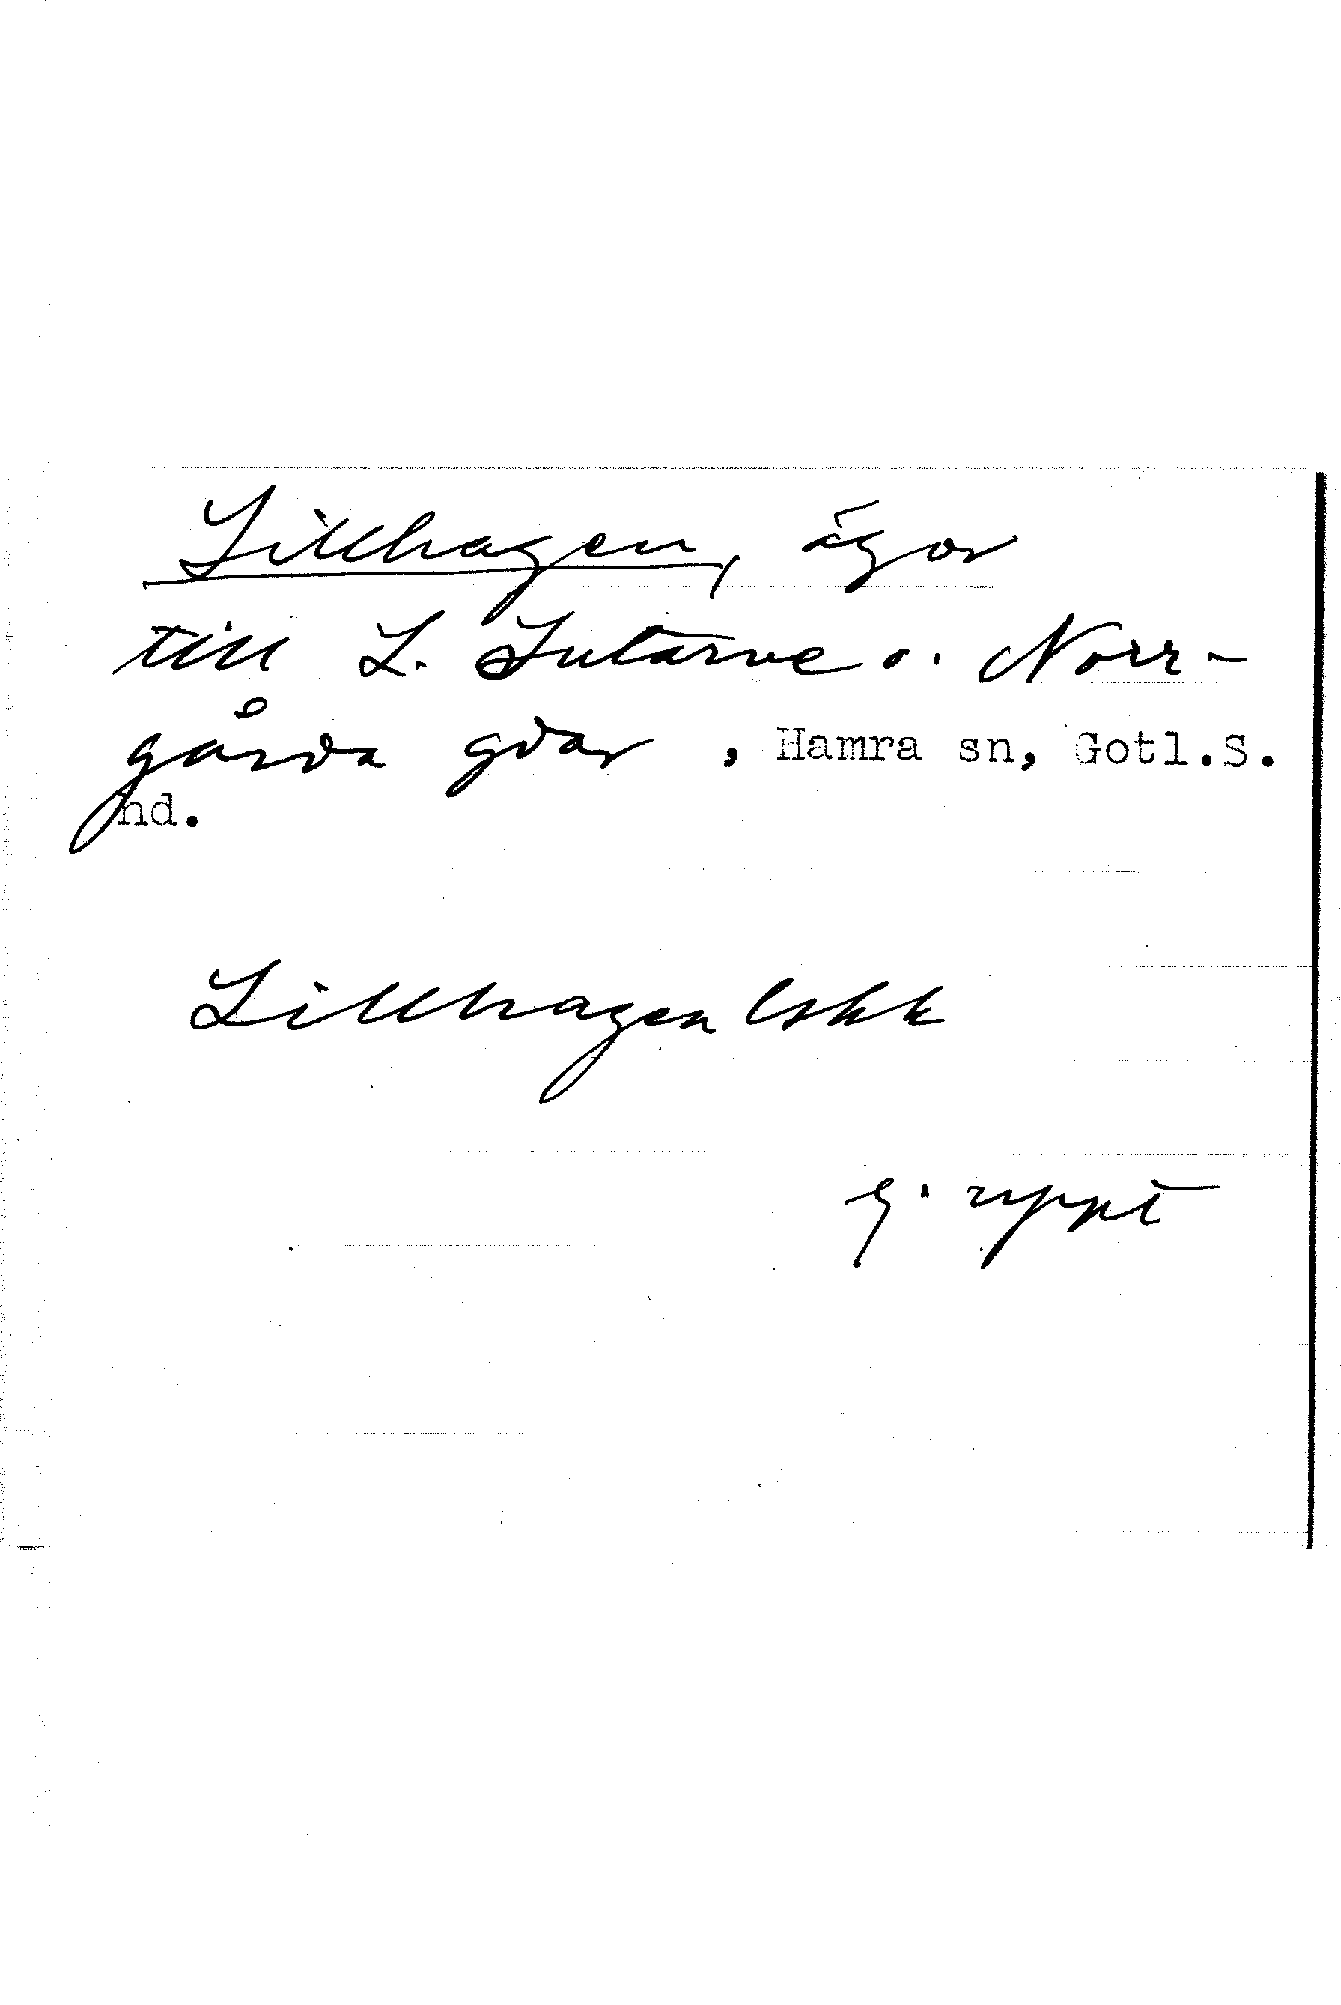 Lillhagen, ägor
till L. Sutarve o. Norr-
gårda gdar , Hamra sn, Gotl.S.
hd.
Lillhagen lskk
uppt